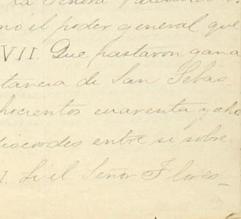 la Señora
no el poder general que
VII. Que pastaron gana
tancia de San Sebas
hocientos cuarenta y ocho
discordes entre si sobre
I. Si el Señor Flores